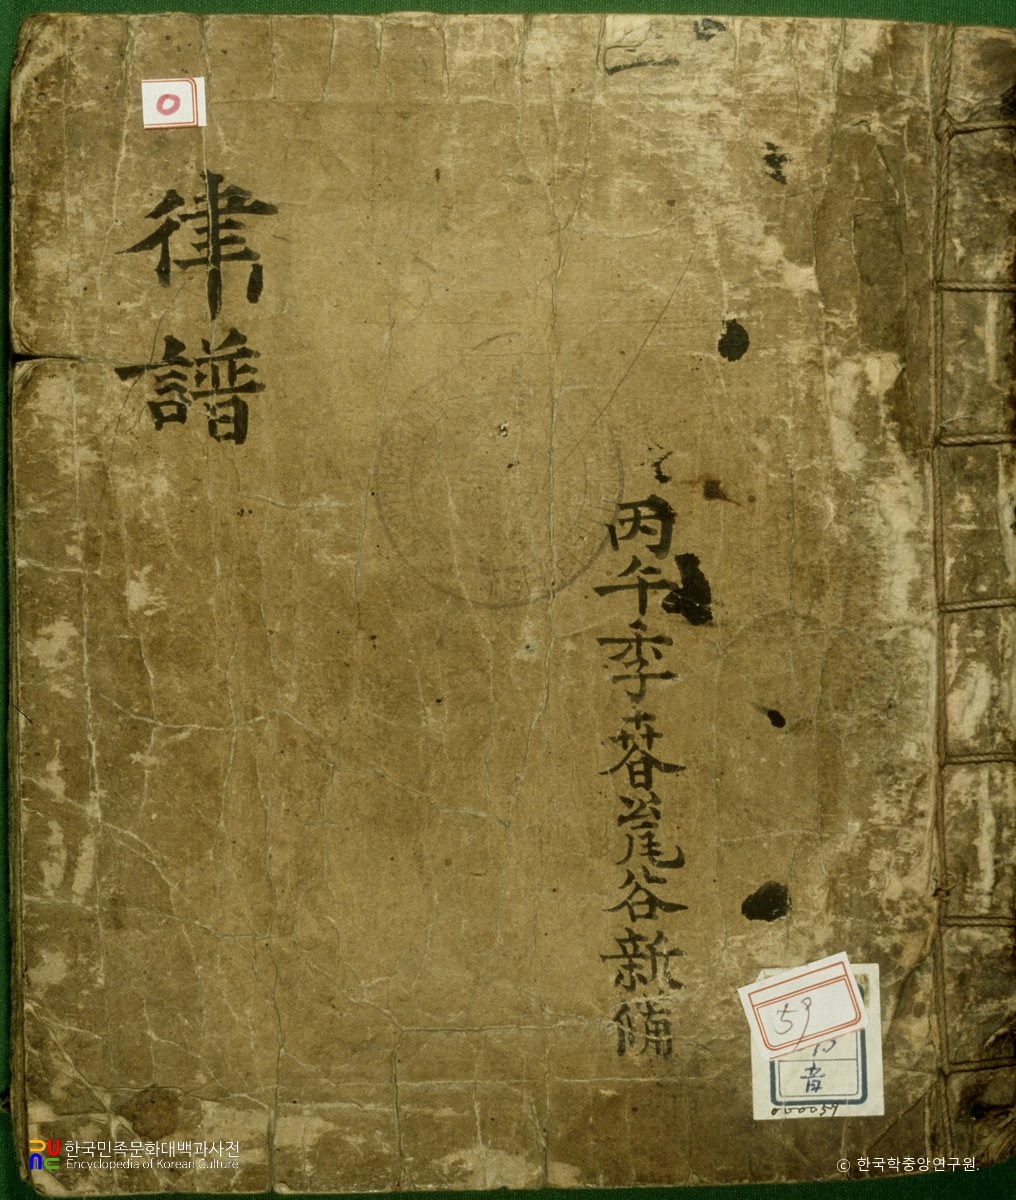 律譜
丙午季暮
谷新備
59
音
000059
한국민족문화대백과사전
Encyclopedia of Korean Culture
© 한국학중앙연구원.